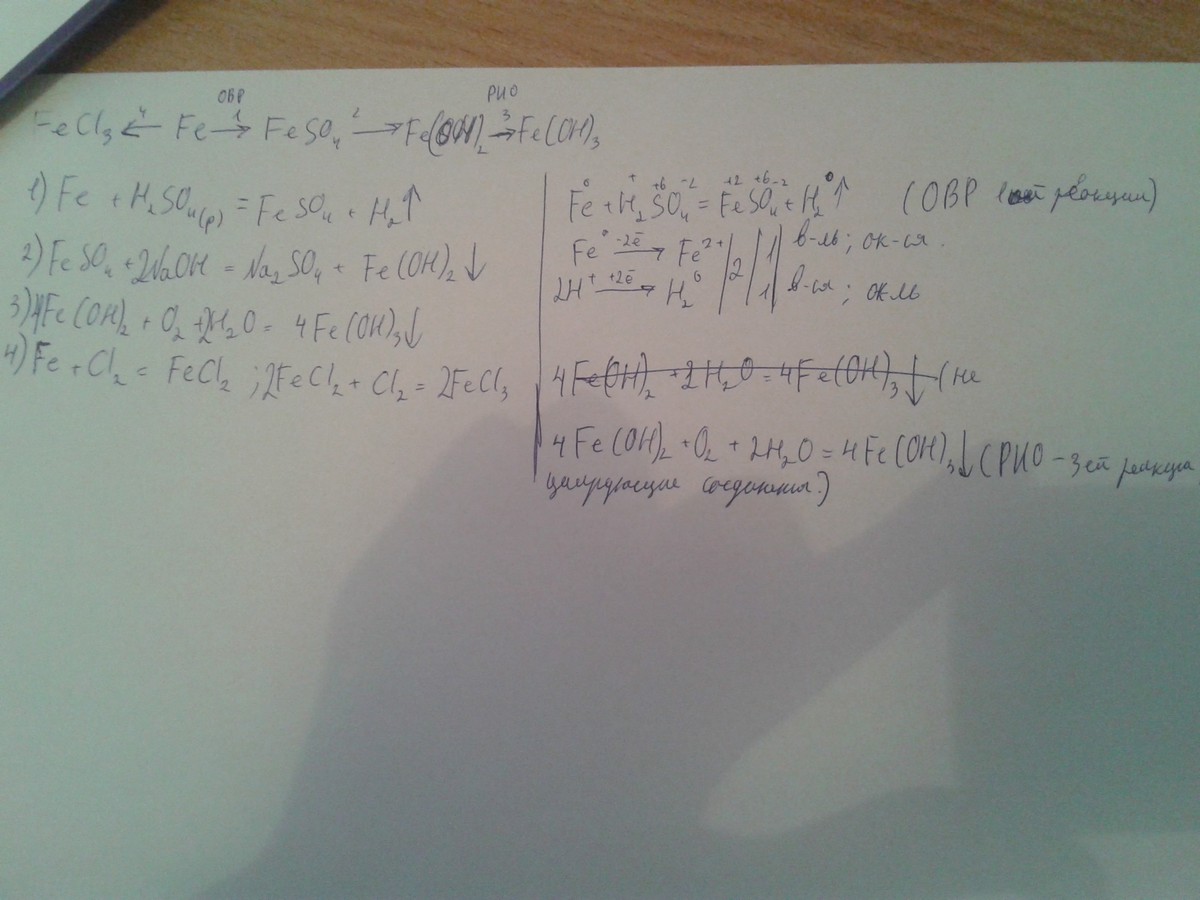 ОВР РИО
FeCl3 ←4 Fe 1→ FeSO4 2→ Fe(OH)2 3→ Fe(OH)3
1) Fe + H2SO4(р) = FeSO4 + H2↑
2) FeSO4 + 2NaOH = Na2SO4 + Fe(OH)2↓
3) 4Fe(OH)2 + O2 + 2H2O = 4Fe(OH)3↓
4) Fe + Cl2 = FeCl2 ; 2FeCl2 + Cl2 = 2FeCl3
0 + +6 -2 +2 +6 -2 0
Fe + H2SO4 = FeSO4 + H2↑ (ОВР 1ой реакции)
Fe0 -2e→ Fe2+ | 2 | 1 | в-ль; ок-ся.
2H+ +2e→ H20 | | 1 | в-ся; ок-ль
4Fe(OH)2 + 2H2O = 4Fe(OH)3↓ (не
4Fe(OH)2 + O2 + 2H2O = 4Fe(OH)3↓ (РИО - 3ей реакция
соединения.)